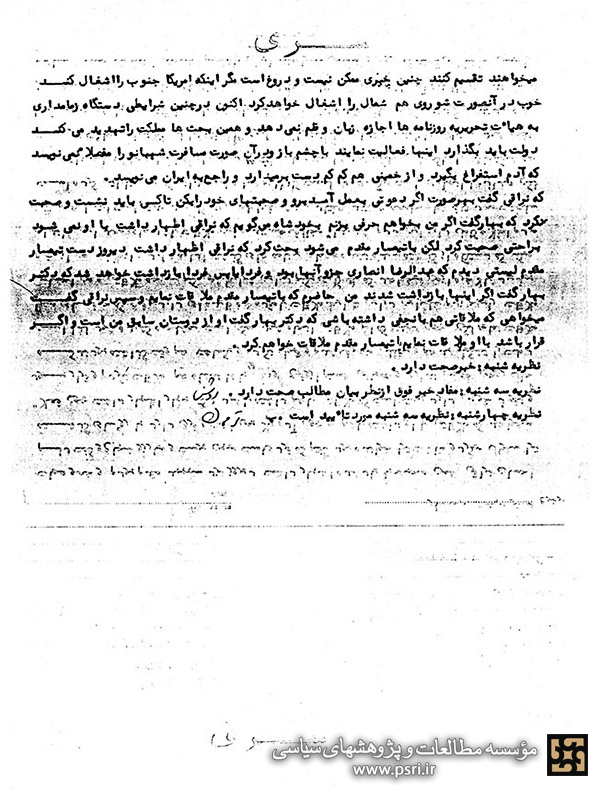 سری
میخواهند تقسیم کنند چنین چیزی ممکن نیست و دروغ است مگر اینکه امریکا جنوب را اشغال کنـد
خوب در آنصورت شوروی هم شمال را اشغال خواهد کرد اکنون در چنین شرایطی دستگاه زمامداری
به هیاٴت تحریریه روزنامه ها اجازه زبان و قلم نمی دهد و همین بحث ها مملکت را تهدید می کنـد
دولت باید بگذارد اینها فعالیت نمایند باچشم باز و در آن صورت مسافرت شهبانو را مفصلا نمی نویسد
که آدم استفراغ بگیرد و از خمینی هم کم کم دست برمیدارد و راجع به ایران می نویسد .
که نراقی گفت بهرصورت اگر دعوتی بعمل آمد برو و صحبتهای خود را بکن تاکس باید نشست و صحبت
نکرد که بهار گفت اگر من بخواهم حرفی بزنم بخود شاه می گویم که نراقی اظهار داشت با او نمی شود
براحتی صحبت کرد لکن با تیمسار مقدم می شود بحث کرد که نراقی اظهار داشت دیروز دست تیمسار
مقدم لیستی دیدم که عبدالرضا انصاری جزو آنها بود و فردا یا پس فردا بازداشت خواهد شد که دکتر
بهار گفت اگر اینها بازداشت شدند من حاضرم که با تیمسار مقدم ملاقات نمایم و سپس نراقی گفـت
میخواهی که ملاقاتی هم با نجفی داشته باشی که دکتر بهار گفت او از دوستان سابق من است و اگـر
قرار باشد با او ملاقات نمایم با تیمسار مقدم ملاقات خواهم کرد .
نظریه شنبه : خبر صحت دارد .
نظریه سه شنبه : مفاد خبر فوق از نظر بیان مطالب صحت دارد .
نظریه چهارشنبه : نظریه سه شنبه مورد تاٴیید است . ب
سری
مؤسسه مطالعات و پژوهشهای سیاسی
www.psri.ir